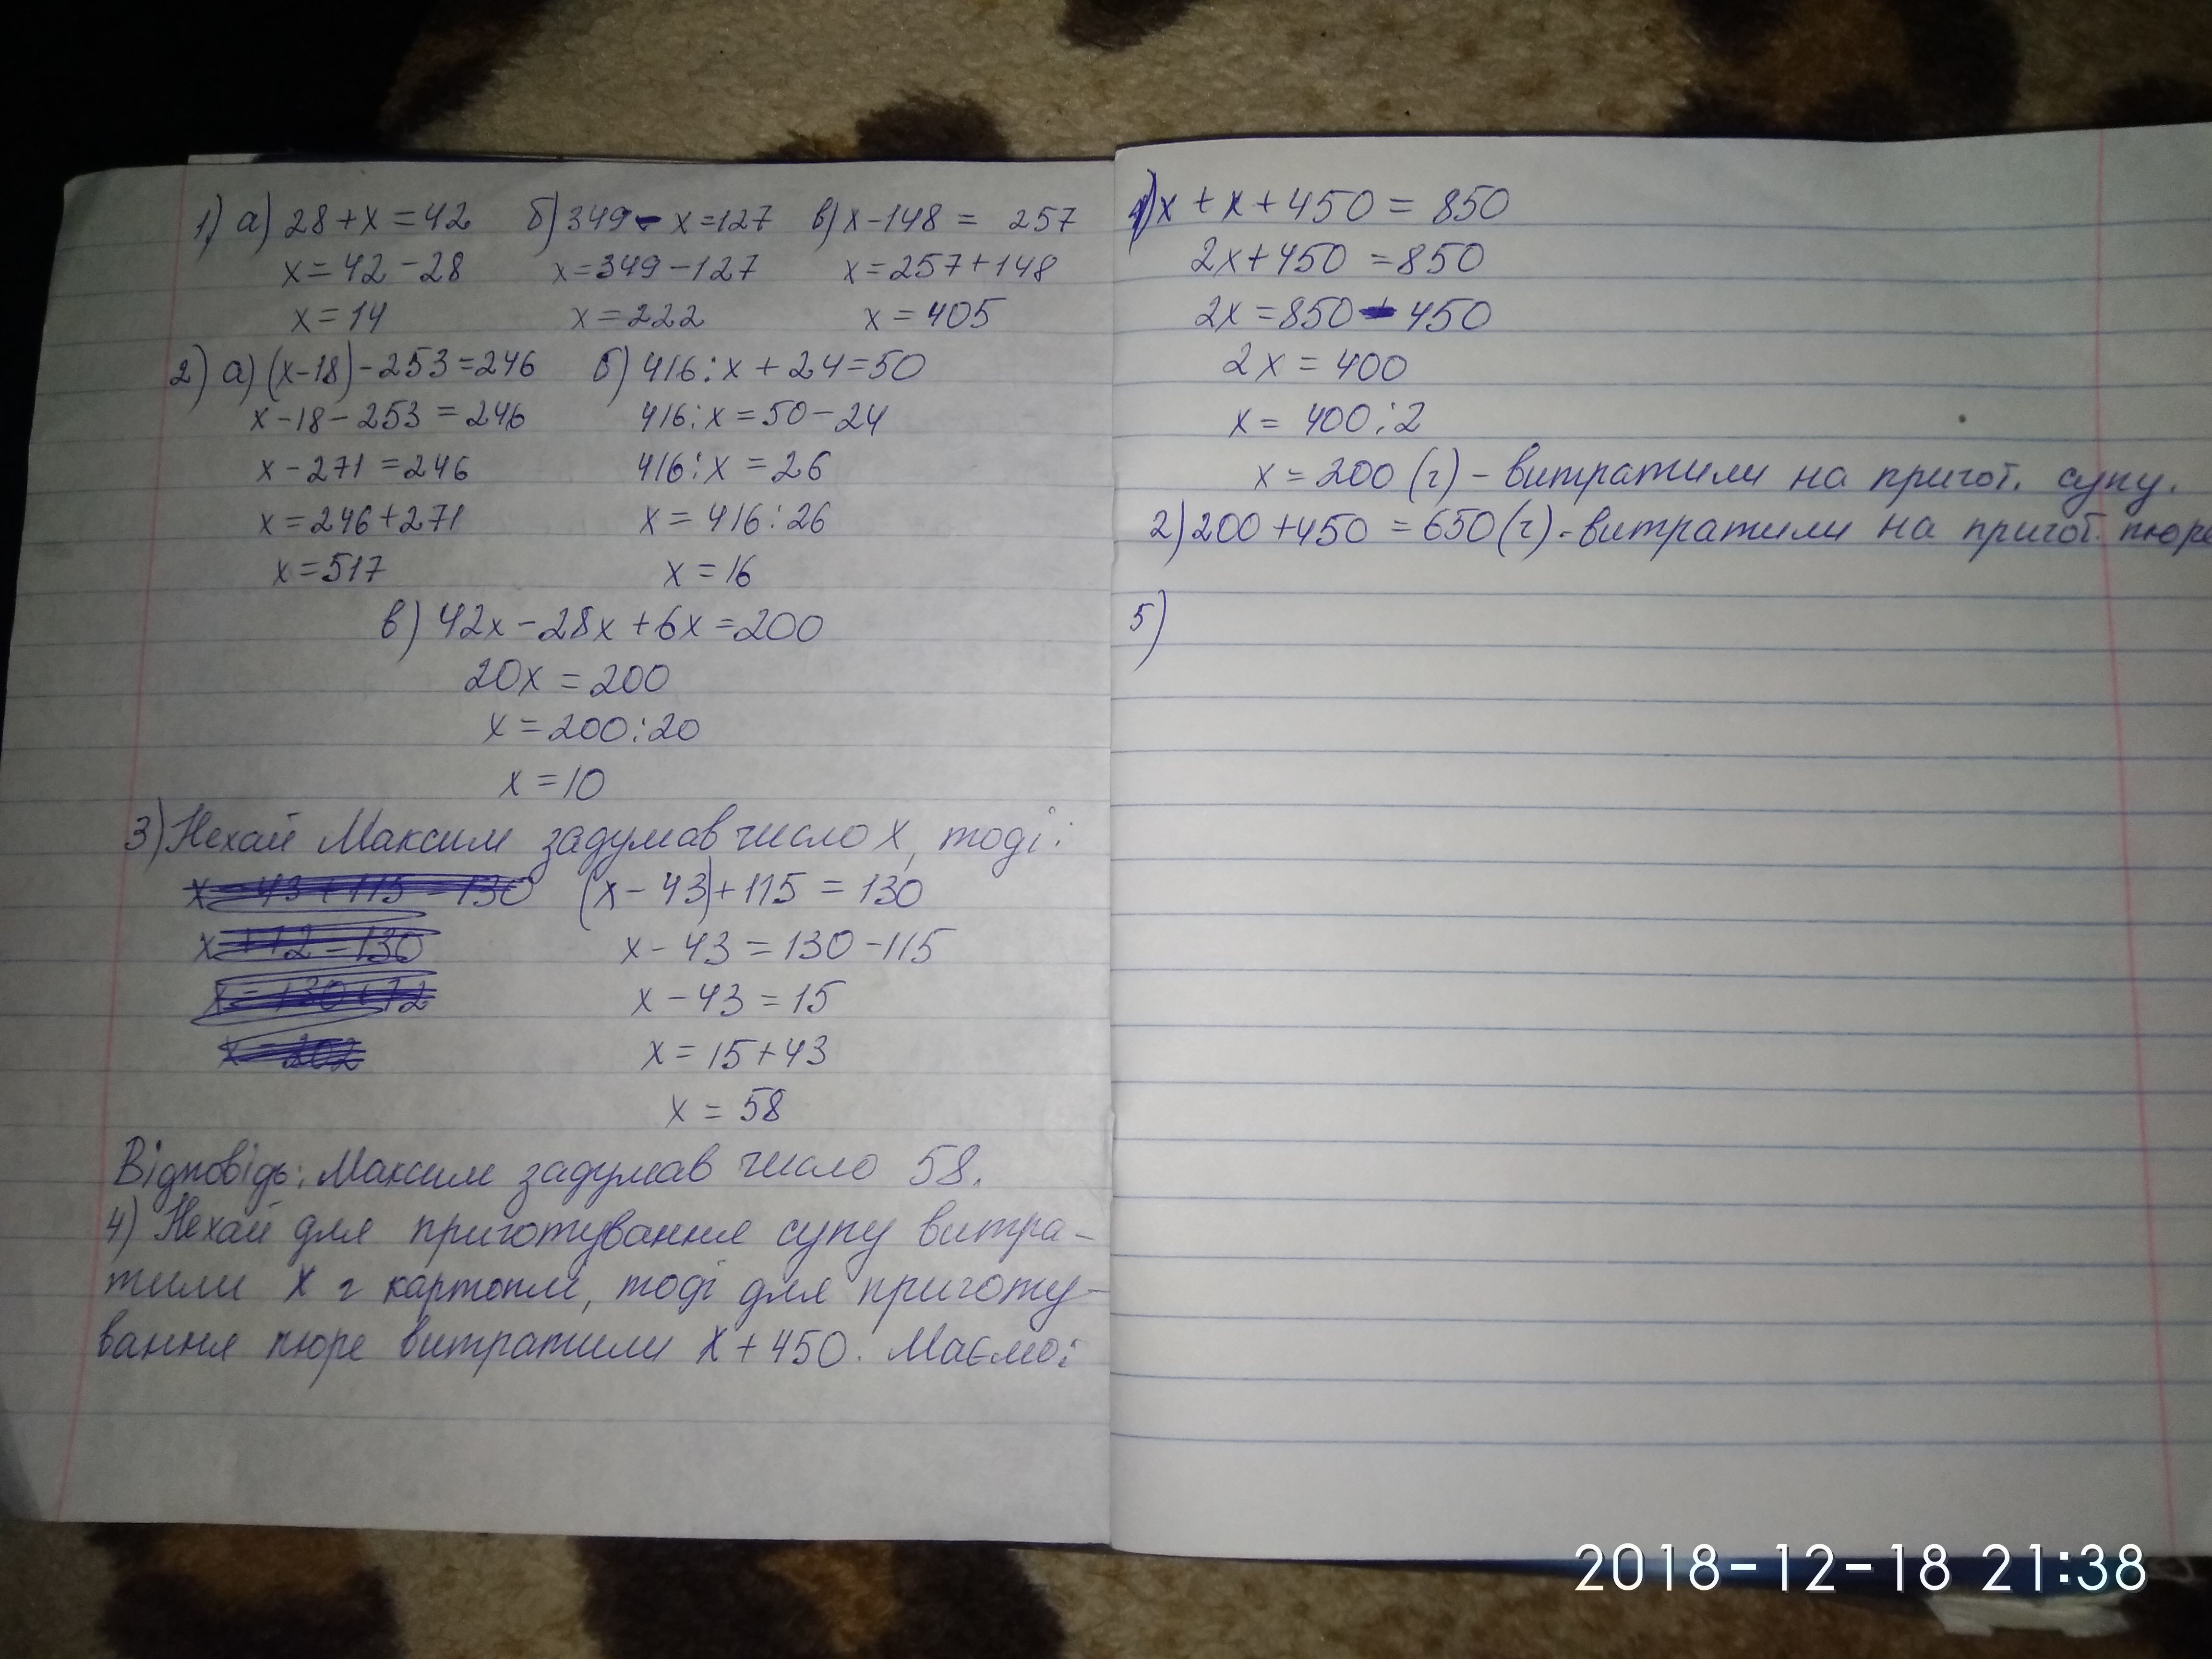 1) а) 28+x=42 б) 349-x=127 в) x-148= 257
x=42-28 x=349-127 x=257+148
x=14 x=222 x=405
2) а) (x-18)-253=246 б) 416:x+24=50
x-18-253=246 416:x=50-24
x-271=246 416:x=26
x=246+271 x=416:26
x=517 x=16
в) 42x-28x+6x=200
20x=200
x=200:20
x=10
3) Нехай Максим задумав число x, тоді:
x-43+115=130 (x-43)+115=130
x+72=130 x-43=130-115
x=130+72 x-43=15
x=202 x=15+43
x=58
Відповідь: Максим задумав число 58.
4) Нехай для приготування супу витра-
тили x г картоплі, тоді для приготу-
вання пюре витратили x+450. Маємо:
1) x+x+450=850
2x+450=850
2x=850-450
2x=400
x=400:2
x=200 (г) - витратили на пригот. супу.
2) 200+450=650 (г) - витратили на пригот. пюре
5)
2018-12-18 21:38